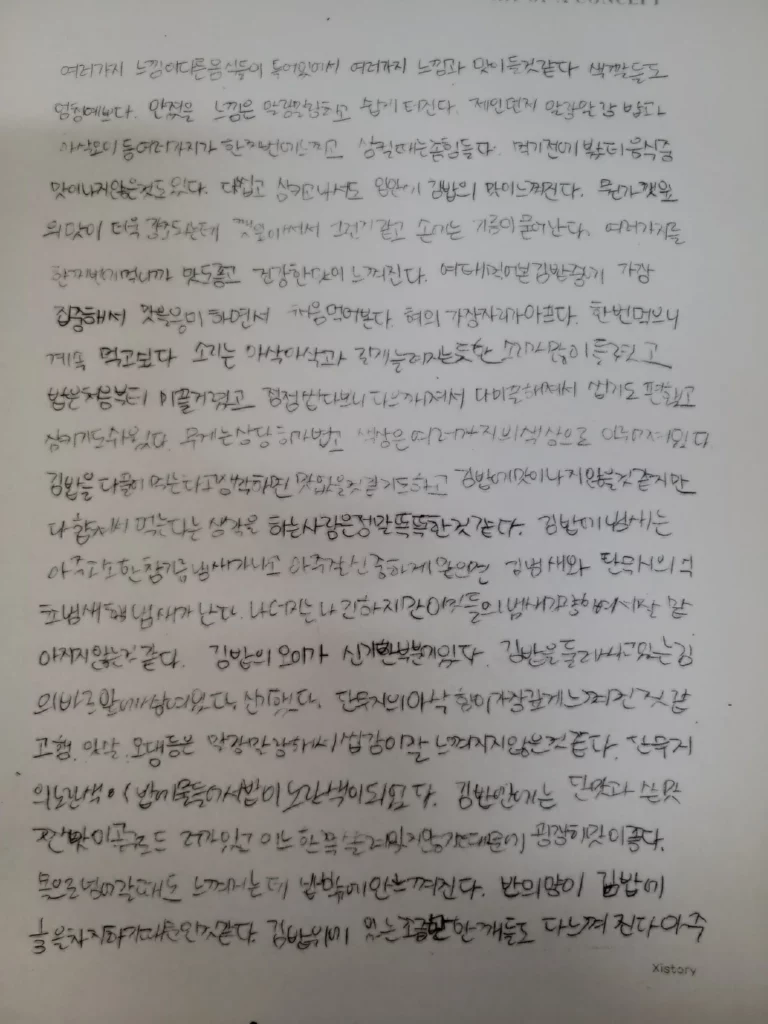 여러가지 느낌이다른음식들이 들어있어서 여러가지 느낌과 맛이든것같다 색깔들도
엄청예쁘다. 만졌을 느낌은 말랑말랑하고 쉽게 터진다. 제일먼저 말랑말랑 밥과
아삭오이 등여러가지가 한꺼번에느끼고 삼킬때는좀힘들다. 먹기전에 봤더음식중
맛이나지않을것도 있다. 다씹고 삼키고나서도 입안에 김밥의 맛이느껴진다. 뭔가깻잎
의맛이 더욱 손에는 기름이 묻어난다. 여러가지를
한꺼번에먹으니까 맛도좋고 건강한맛이 느껴진다. 여태먹어본김밥중에 가장
집중해서 맛음미하면서 처음먹어본다. 혀의 가장자리가아프다. 한번먹으니
계속 먹고싶다 소리는 아삭아삭과 소리가많이들렸고
밥은처음부터 이끌거렸고 점점씹다보니 다으깨져서 다미끌해져서 씹기도 편했고
삼키기도쉬웠다. 무게는상당히가볍고 색상은여러가지의색상으로 이루어져있다
김밥을 다풀어먹는다고생각하면 맛없을것같기도하고 김밥에맛이나지않을것같지만
다합쳐서 먹는다는 생각을 하는사람은정말똑똑한것 같다. 김밥에냄새는
아주고소한참기름냄새가나고 아주잘신중하게 맡으면 김냄새와 단무지의 식
초냄새 냄새가 난다. 나머지는나긴하지만 냄새 잘 맡
아지지않는것같다. 김밥의 오이가 신기한부분에있다. 김밥을둘러싸고있는김
의바로앞에 있었다. 신기했다. 단무지의아삭 함이가장깊게느껴진 것 같
고햄. 맛살. 오뎅등은 말랑말랑해서씹감이잘 느껴지지않은것같다. 단무지
의노란색이 밥에물들어서밥이 노란색이되었다. 김밥안에는 단맛과 쓴맛
짠맛이골고루 있고 어느한쪽 쏠려있지않기때문에 굉장히맛이좋다.
목으로넘어갈때도 느껴지는데 밥밖에안느껴진다. 밥의양이 김밥에
⅓을차지하기때문인것같다. 김밥위에 있는조금만한 깨들도 다느껴 진다아주
Xistory